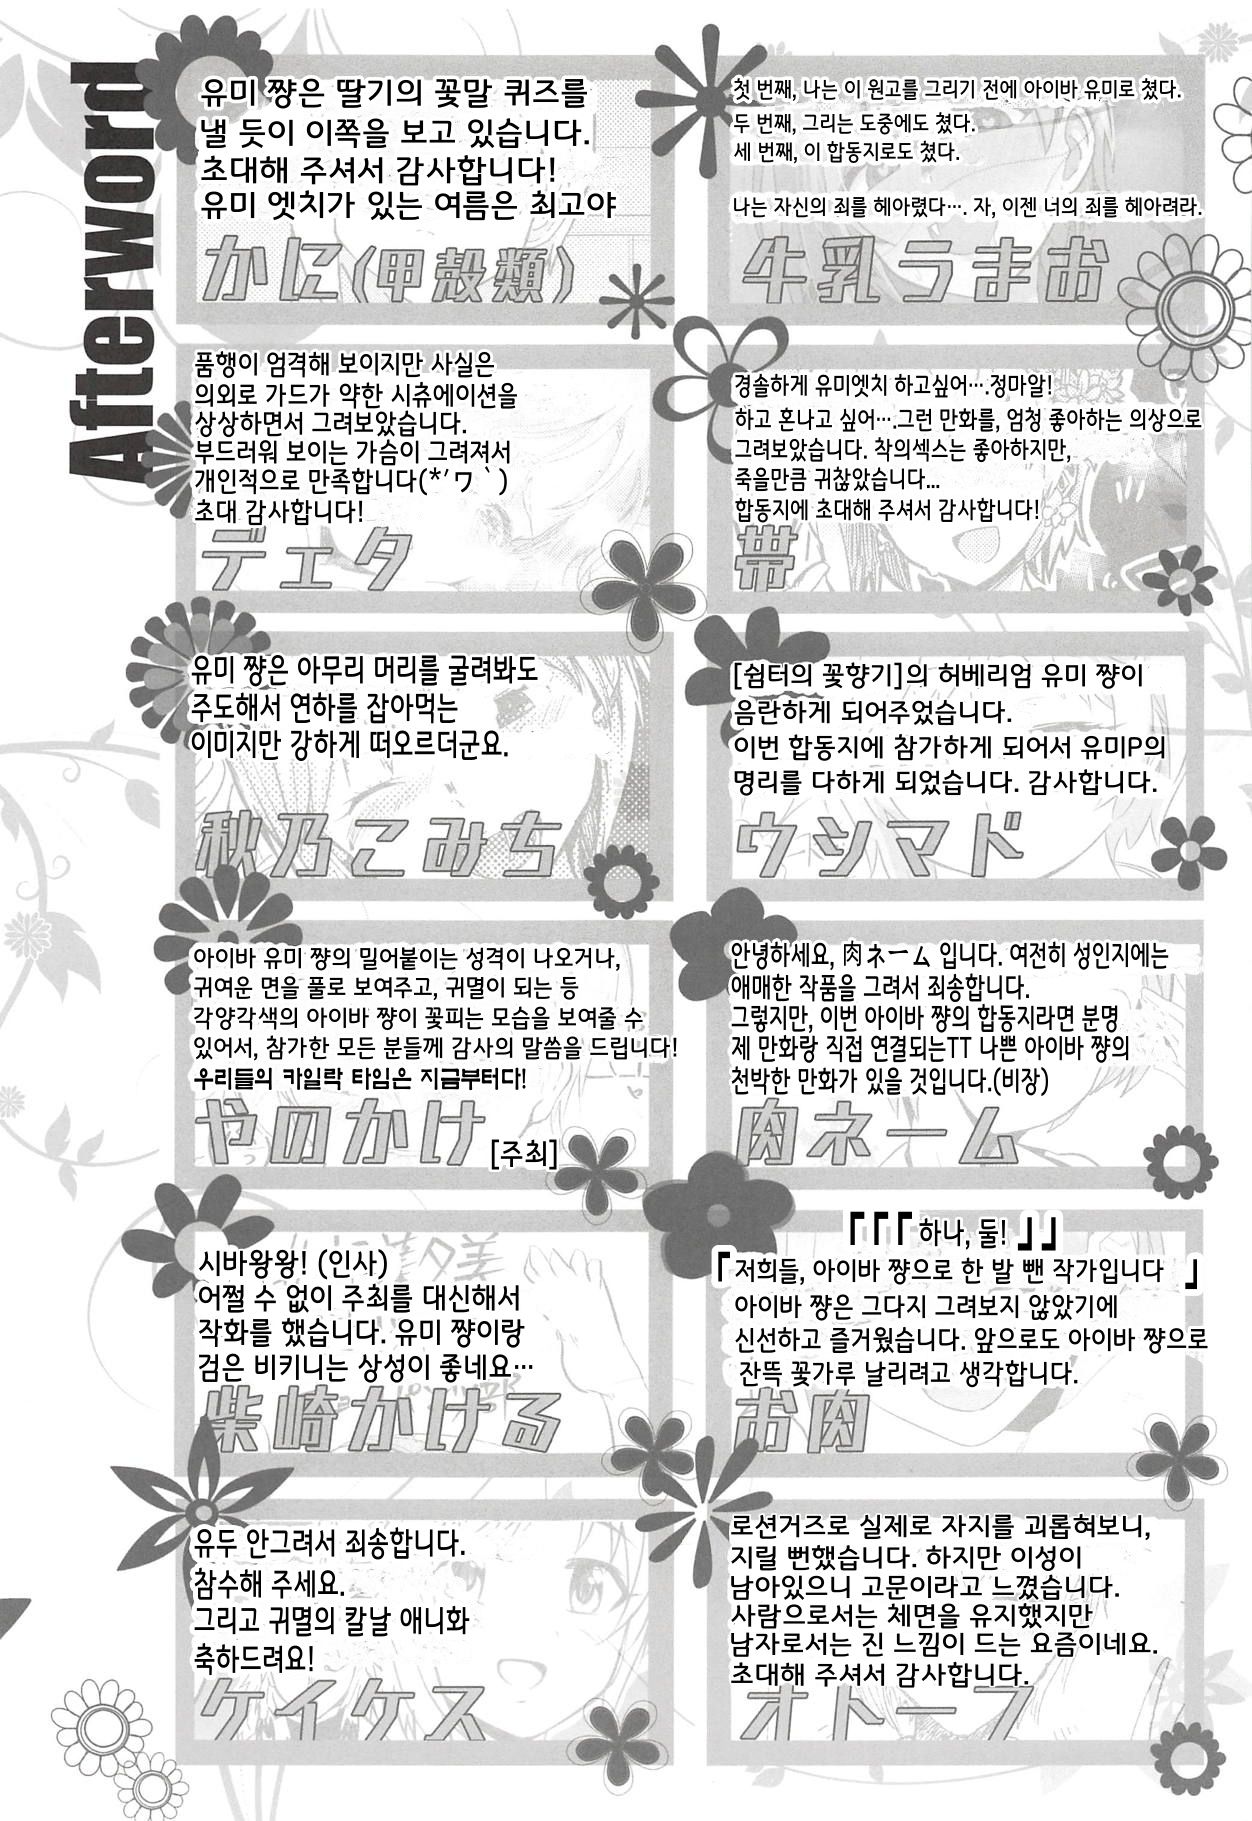 Afterword
유미 쨩은 딸기의 꽃말 퀴즈를
낼 듯이 이쪽을 보고 있습니다.
초대해 주셔서 감사합니다!
유미 엣치가 있는 여름은 최고야
かに(甲殻類)
첫 번째, 나는 이 원고를 그리기 전에 아이바 유미로 쳤다.
두 번째, 그리는 도중에도 쳤다.
세 번째, 이 합동지로도 쳤다.
나는 자신의 죄를 헤아렸다…. 자, 이젠 너의 죄를 헤아려라.
牛乳うまお
품행이 엄격해 보이지만 사실은
의외로 가드가 약한 시츄에이션을
상상하면서 그려보았습니다.
부드러워 보이는 가슴이 그려져서
개인적으로 만족합니다(*′ワ`)
초대 감사합니다!
デェタ
경솔하게 유미엣치 하고싶어….정마알!
하고 혼나고 싶어….그런 만화를, 엄청 좋아하는 의상으로
그려보았습니다. 착의섹스는 좋아하지만,
죽을만큼 귀찮았습니다...
합동지에 초대해 주셔서 감사합니다!
帯
유미 쨩은 아무리 머리를 굴려봐도
주도해서 연하를 잡아먹는
이미지만 강하게 떠오르더군요.
秋乃こみち
[쉼터의 꽃향기]의 허베리엄 유미 쨩이
음란하게 되어주었습니다.
이번 합동지에 참가하게 되어서 유미P의
명리를 다하게 되었습니다. 감사합니다.
ウシマド
아이바 유미 쨩의 밀어붙이는 성격이 나오거나,
귀여운 면을 풀로 보여주고, 귀멸이 되는 등
각양각색의 아이바 쨩이 꽃피는 모습을 보여줄 수
있어서, 참가한 모든 분들께 감사의 말씀을 드립니다!
우리들의 카일락 타임은 지금부터다!
やのかけ [주최]
안녕하세요, 肉ネーム 입니다. 여전히 성인지에는
애매한 작품을 그려서 죄송합니다.
그렇지만, 이번 아이바 쨩의 합동지라면 분명
제 만화랑 직접 연결되는TT 나쁜 아이바 쨩의
천박한 만화가 있을 것입니다.(비장)
肉ネーム
시바왕왕! (인사)
어쩔 수 없이 주최를 대신해서
작화를 했습니다. 유미 쨩이랑
검은 비키니는 상성이 좋네요…
柴崎かける
「「「하나, 둘!」」
「저희들, 아이바 쨩으로 한 발 뺀 작가입니다」
아이바 쨩은 그다지 그려보지 않았기에
신선하고 즐거웠습니다. 앞으로도 아이바 쨩으로
잔뜩 꽃가루 날리려고 생각합니다.
お肉
유두 안그려서 죄송합니다.
참수해 주세요.
그리고 귀멸의 칼날 애니화
축하드려요!
ケイケス
로션거즈로 실제로 자지를 괴롭혀보니,
지릴 뻔했습니다. 하지만 이성이
남아있으니 고문이라고 느꼈습니다.
사람으로서는 체면을 유지했지만
남자로서는 진 느낌이 드는 요즘이네요.
초대해 주셔서 감사합니다.
オトーフ